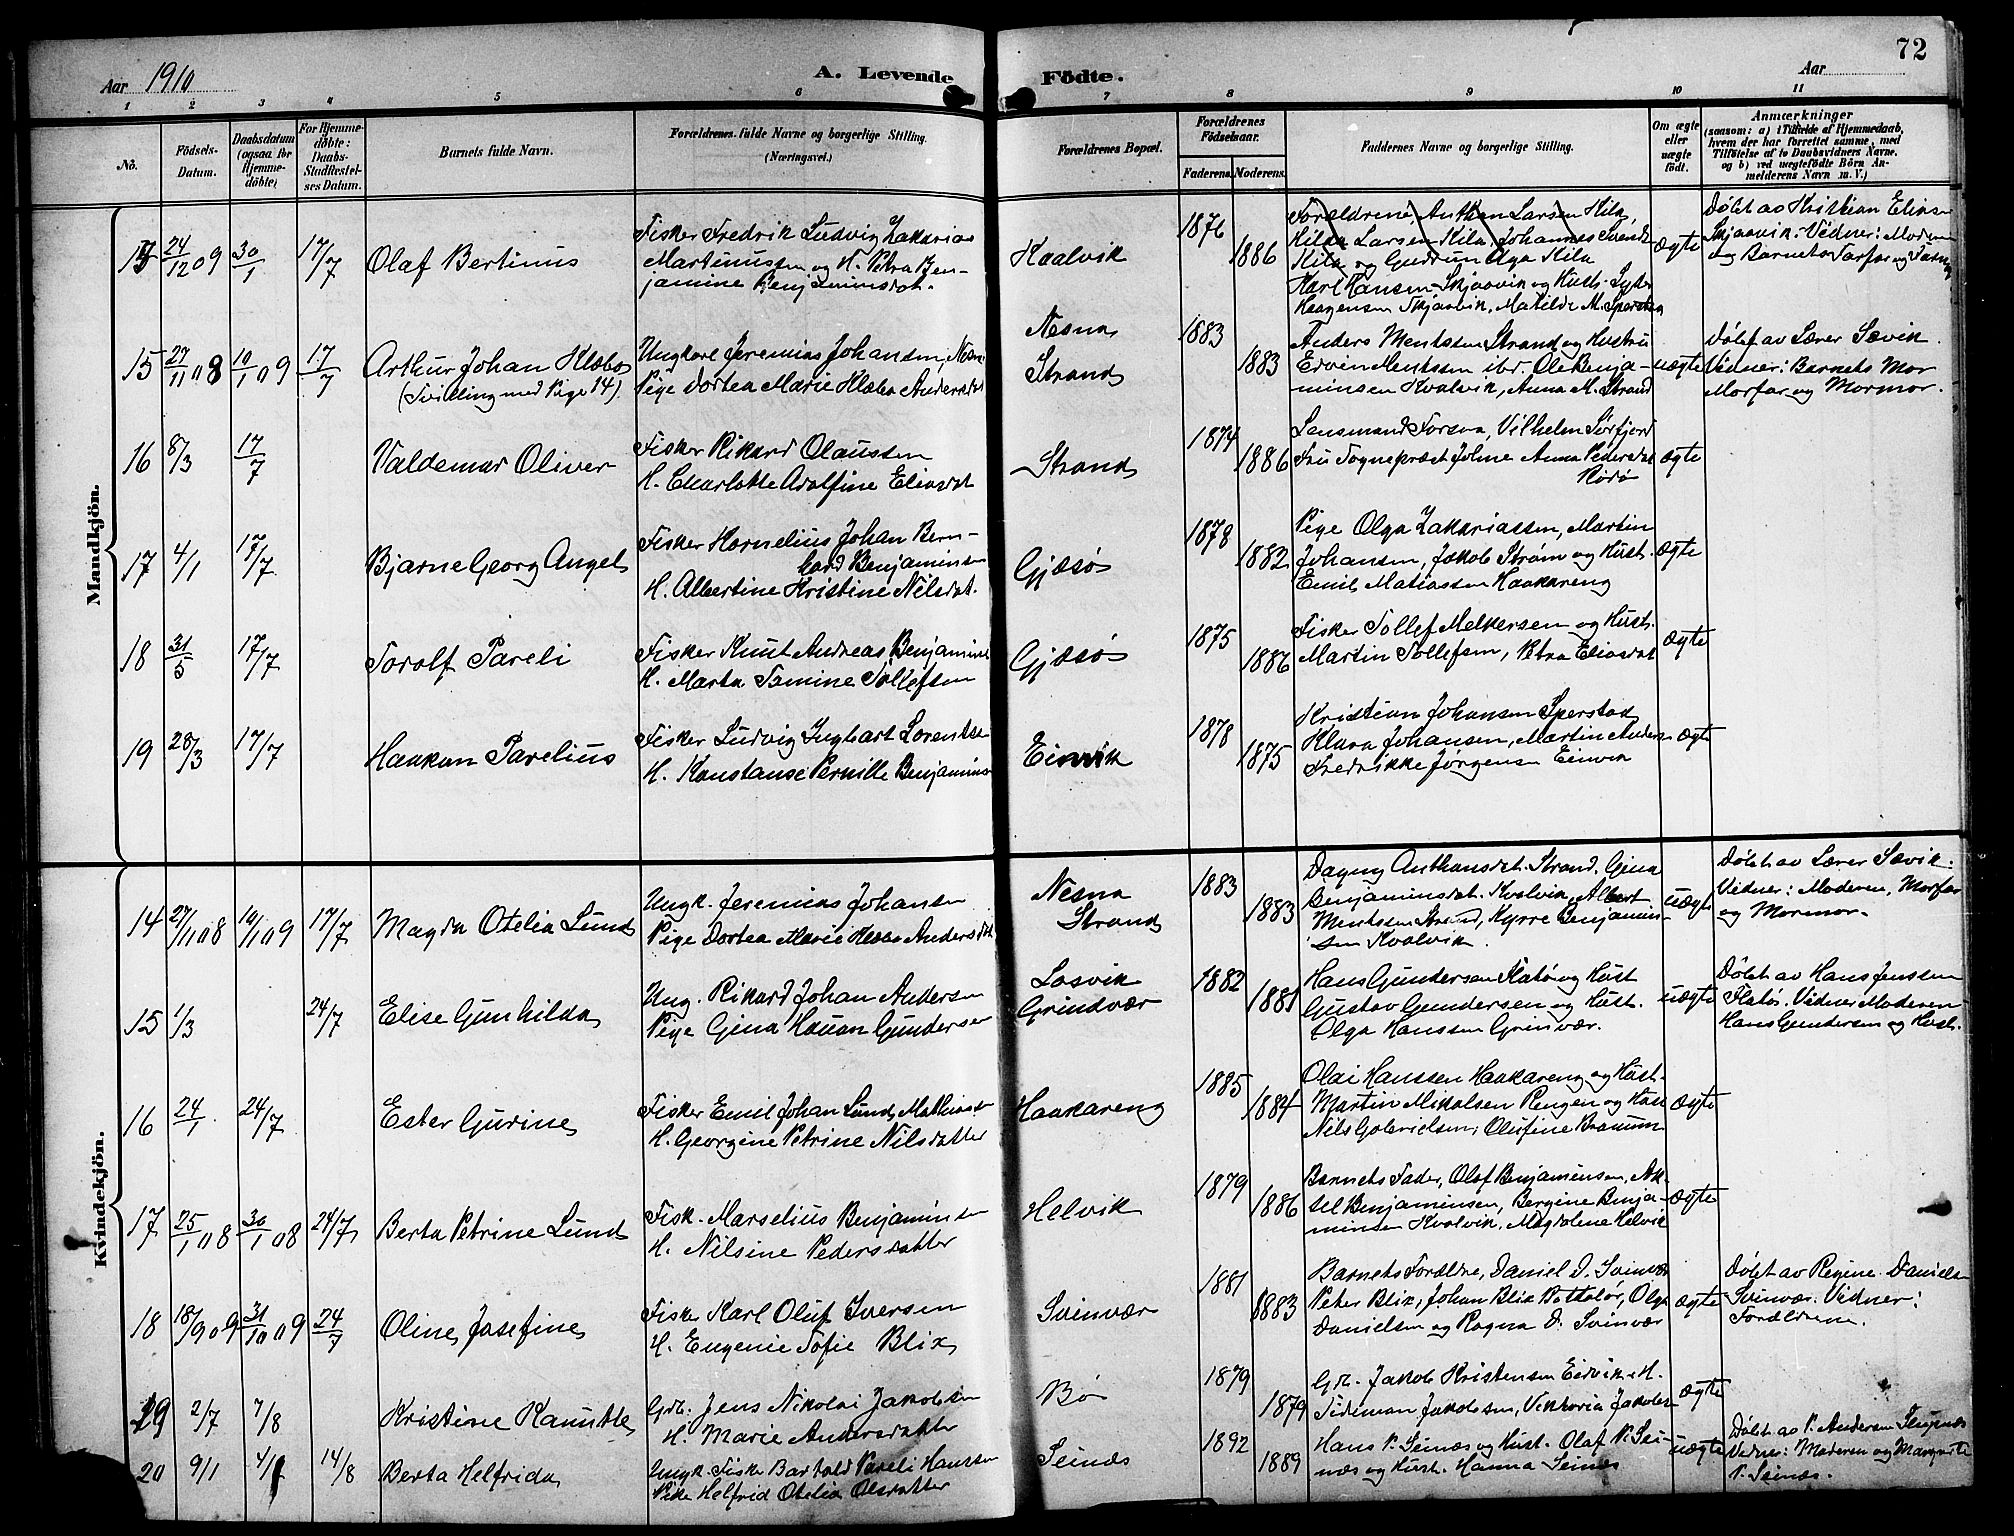 Aar 1910
A. Levende Födte.
Aar
72
1 2 3 4 5 6 7 8 9 10 11
No.
Födsels-
Datum.
Daabsdatum
(ogsaa for
Hjemme-
döbte)
For Hjemme-
döbte:
Daabs-
Stadfæstel-
ses Datum.
Barnets fulde Navn.
Forældrenes fulde Navne og borgerlige Stilling.
(Næringsvei.)
Forældrenes Bopæl.
Forældrenes
Födselsaar.
Faderens. Moderens.
Faddernes Navne og borgerlige Stilling.
Om ægte
eller
uægte
födt.
Anmærkninger
(saasom: a) i Tilfælde af Hjemmedaab,
hvem der har forrettet samme, med
Tilföielse af to Daabsvidners Navne,
og b) ved uægtefödte Börn An-
melderens Navn m. V.)
Mandkjön.
24/12 09 30/1 17/7
Olaf Bertinus
Fisker Fredrik Ludvig Zakarias
Martinussen og H. Petra Ben-
jamine Benjaminsdat.
Kaalvik
1876
1886
Forældrene, Anton Larsen Kila,
Hilda Larsen Kila, Johannes
Kila og Gudrun Aga Kila
Karl Hansen Skjaavik og Hust.
Haagensen Skjaavik, Matilde M. Sperstad
ægte
Døbt av Kristian Elias
Skjaavik. Vidner: Moderen
og Barnets Farfar og Farmor
15 27/11 08 10/1 09 17/7
Arthur Johan Klæbo
(Tvilling med Pige 14).
Ungkarl Jeremias Johansen, Nesna
Pige Dortea Marie Klæbo Andersdat
Nesna
Strand
1883
1883
Anders Mentzsen Strand og Hustru
Edvin Mentzsen ibd. Ole Benja-
minsen Kvalvik, Anna M. Strand
uægte
Døbt av Lærer Sævik.
Vidner: Barnets Mor
Morfar og Mormor.
16 8/3 17/7
Valdemar Oliver
Fisker Rikard Olaussen
H. Charlotte Adolfine Eliasdat
Strand
1874
1886
Lensmand Forsaa, Vilhelm Sørfjord
Fru Sogneprest Jolme Anna Pedersdat
Rödö
ægte
17 4/1 17/7
Bjarne Georg Angel
Fisker Kornelius Johan Bern-
hard Benjaminsen
H. Albertine Kristine Nilsdat.
Gjæsø
1878
1882
Pige Olga Zakariassen, Martin
Johansen, Jakob Strøm og Hust.
Emil Matiassen Haakareng
ægte
18 31/5 17/7
Torolf Pareli
Fisker Knut Andreas Benjaminsen
H. Marta Tomine Tollefsen
Gjæsø
1875
1886
Fisker Tollef Melkersen og Hust.
Martin Tollefsen, Petra Eliasdat
ægte
19 28/3 17/7
Haakon Parelius
Fisker Ludvig Ingbart Lorentse
H. Konstanse Pernille Benjamins
Einvik
1878
1875
Kristian Johansen Sperstad
Klara Johansen, Martin Anders
Fredrikke Jørgensen Einvik
ægte
Kvindekjön.
14 27/11 08 10/1 09 17/7
Magda Otelia Lund
Ungk. Jeremias Johansen
Pige Dortea Marie Klæbo Andersdat
Nesna
Strand
1883
1883
Dagny Anthonsdat. Strand, Gina
Benjaminsdat. Kvalvik, Albert
Mentzsen Strand, Kyrre Benjamin-
sen Kvalvik.
uægte
Døbt av Lærer Sævik.
Vidner: Moderen, Morfar
og Mormor.
15 1/3 24/7
Elise Gunhilda
Ung. Rikard Johan Andersen
Pige Gina Hauan Gundersen
Losvik
Grindvær
1882
1881
Hans Gundersen Flatø og Hust
Gustav Gundersen og Hust.
Olga Hanssen Grinvær.
uægte
Døbt av Hans Jenssen
Flatø. Vidner Moderen
Hans Gundersen og Hust.
16 24/1 24/7
Ester Gurine
Fisker Emil Johan Lund Mathiassen
H. Georgine Petrine Nilsdatter
Haakareng
1885
1884
Olai Hanssen Haakareng og Hust.
Martin Mikalsen Rengen og Hust
Nils Gabrielsen, Olufine
ægte
17 25/1 08 30/1 08 24/7
Berta Petrine Lund
Fisk. Marselius Benjaminsen
H. Nilsine Pedersdatter
Helvik
1879
1886
Barnets Fader, Olaf Benjaminsen, Ak-
sel Benjaminsen, Bergine Benja-
minsen Kvalvik, Magdalene Helvik
ægte
18 18/9 09 31/10 09 24/7
Oline Josefine
Fisker Karl Oluf Iversen
H. Eugenie Sofie Blix
Svinvær
1881
1883
Barnets Forældre, Daniel D. Svinvær
Peter Blix, Johan Blix, Olga
Danielsen og Ragna D. Svinvær
ægte
Døbt av Regine Daniels
Svinvær. Vidner:
Forældrene.
19 2/7 7/8
Kristine Kamitte
Grb. Jens Nikolai Jakobsen
H. Marie Andersdatter
Bø
1879
1879
Grb. Jakob Kristensen Eidvik H.
Tideman Jakobsen, Viktoria Jakobs
ægte
20 9/1 14/8
Berta Helfrida
Ungk. Fisker Bartold Pareli Hanssen
Pike Helfrid Otelia Olsdatter
Seinæs
1892
1889
Hans P. Seinæs og Hust. Olaf P. Sei-
næs og Hust. Hanna Seinæs
uægte
Døbt av P. Andersen
Vidner: Moderen og Margrete
P. Seinæs.